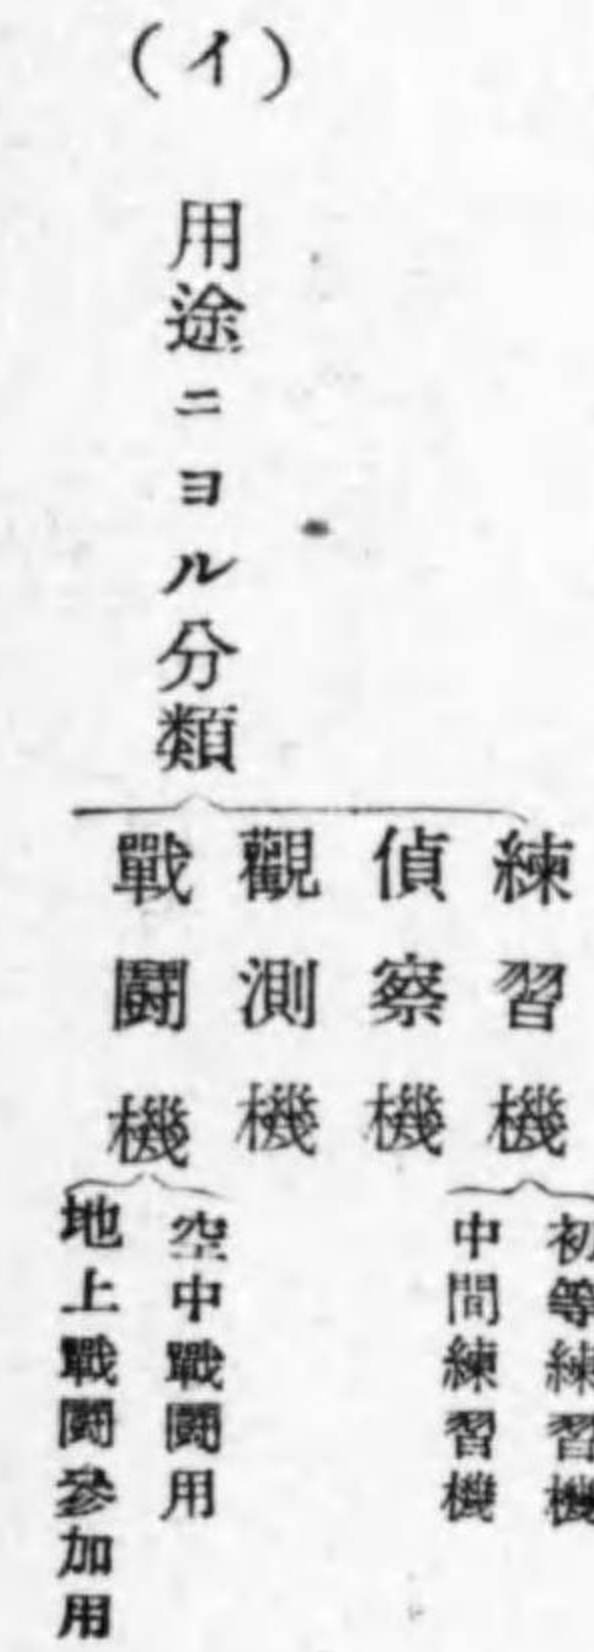 (イ)
用途ニヨル分類
練習機
初等練習機
中間練習機
偵察機
觀測機
戰鬪機
空中戰鬪用
地上戰鬪參加用